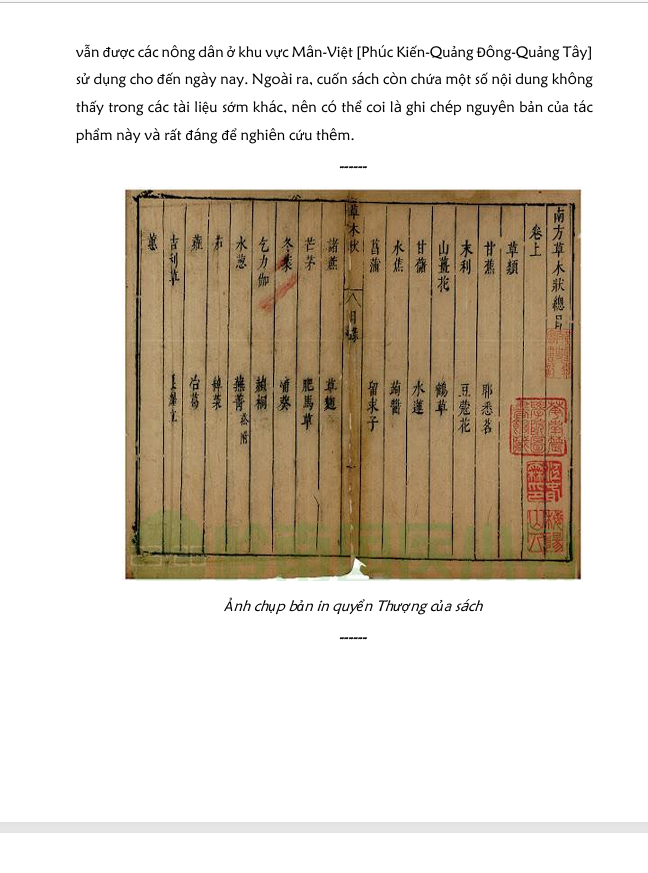 vẫn được các nông dân ở khu vực Mân-Việt [Phúc Kiến-Quảng Đông-Quảng Tây]
sử dụng cho đến ngày nay. Ngoài ra, cuốn sách còn chứa một số nội dung không
thấy trong các tài liệu sớm khác, nên có thể coi là ghi chép nguyên bản của tác
phẩm này và rất đáng để nghiên cứu thêm.
------
南方草木狀總目
卷上
草類
甘蕉 耶悉茗
末利 豆蔻花
山薑花 鶴草
甘藷 水蓮
水焦 蒟醬
菖蒲 留求子
草木狀 目錄
諸蔗 草麴
芒茅 肥馬草
冬葉
乞力伽 赬桐
水葱 蕪菁
茄 綽菜
蕹 冶葛
吉利草
蕙
Ảnh chụp bản in quyển Thượng của sách
------